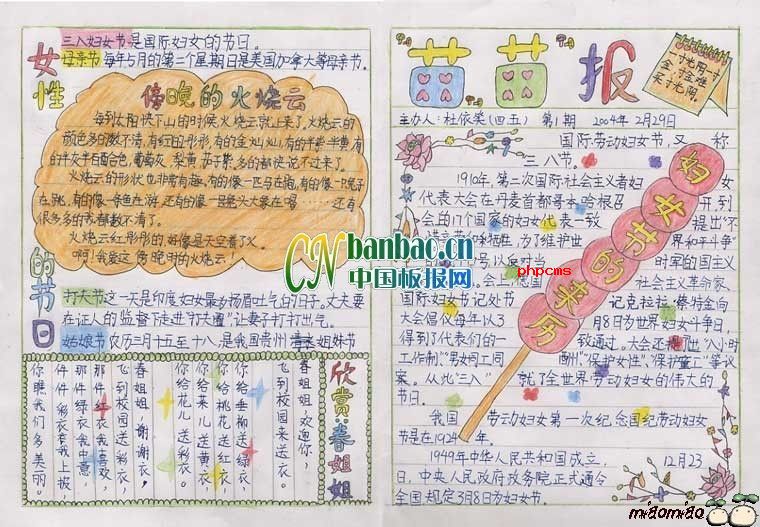 三八妇女节是国际妇女的节日。
母亲节每年5月的第二个星期日是美国加拿大等母亲节。
女性的节日
傍晚的火烧云
每到太阳快下山的时候火烧云就上来了。火烧云的
颜色多的数不清,有红的彤彤,有的金灿灿,有的半紫半黄,有
的半灰半百合色,葡萄灰、梨黄、茄子紫,多的都说不过来了。
火烧云的形状也非常有趣,有的像一匹马在跑,有的像一只兔子
在跳,有的像一条鱼在游,还有的像一只
很多多的我都数不清了。
火烧云红彤彤的,好像是天空着了火。
啊!我爱这傍晚时的火烧云!
打夫节这一天是印度妇女最多扬眉吐气的日子。丈夫要
在证人的监督下走进"打夫圈"让妻子打打出气。
姑娘节农历二月十五至十八,是我国贵州
姐妹节
欣赏·春姐姐
春姐姐,欢迎你,
飞到校园来送衣。
你给垂柳送绿衣,
你给桃花送红衣,
你给菜儿送黄衣,
你给花儿送彩衣。
春姐姐,谢谢衣,
飞到校园送彩衣,
那件红衣我喜欢,
件件绿衣我中意,
件件彩衣套我上披,
你瞧我们多美丽。
苗苗报
一寸光阴一寸
金,寸金难
买寸光阴。
主办人:杜依笑(四五) 第1期 2004年2月29日
国际劳动妇女节,又称
三八节。
1910年,第二次国际社会主义者妇女
代表大会在丹麦首都哥本哈根召开,到
会的17个国家的妇女代表一致提出"不
为了维护世界和平斗争"
号以反对当时军的国主义
会上,德国社会主义革命家
国际妇女节记处书记克拉拉·蔡特金向
大会倡仪每年以3月8日为世界妇女斗争日
得到了代表们的一致通过。大会还提出"八小时
工作制","男女同工同酬","保护女性","保护童工"等议
案。从此"三八"就了全世界劳动妇女的伟大的
节日。
我国劳动妇女第一次纪念国纪劳动妇女
节是在1924年。
1949年中华人民共和国成立,12月23
日,中央人民政府政务院正式通令
全国规定3月8日为妇女节。
妇女节的来历
CNbanbao.cn
中国板报网
phpcms
miaomiao